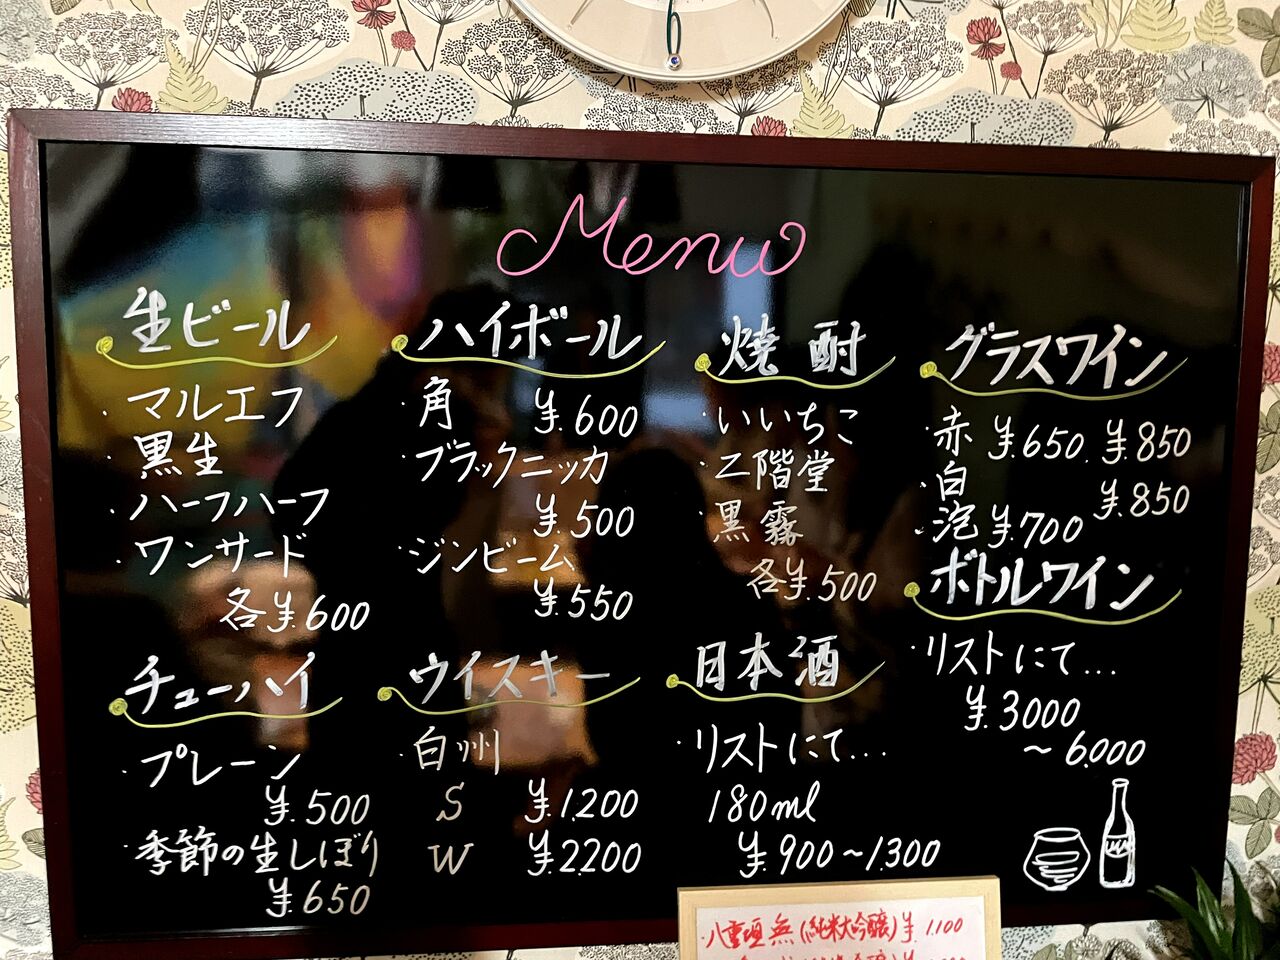 Menu
生ビール
・マルエフ
・黒生
・ハーフハーフ
・ワンサード
各¥600
チューハイ
・プレーン
¥500
・季節の生しぼり
¥650
ハイボール
・角 ¥600
・ブラックニッカ
¥500
・ジンビーム
¥550
ウイスキー
・白州
S ¥1.200
W ¥2.200
焼酎
・いいちこ
・二階堂
・黒霧
各¥500
日本酒
・リストにて...
180ml
¥900～1.300
グラスワイン
・赤 ¥650. ¥850
・白 ¥850
・泡 ¥700
ボトルワイン
・リストにて...
¥3000
～6.000
・八重垣 無(純米大吟醸)¥1.100